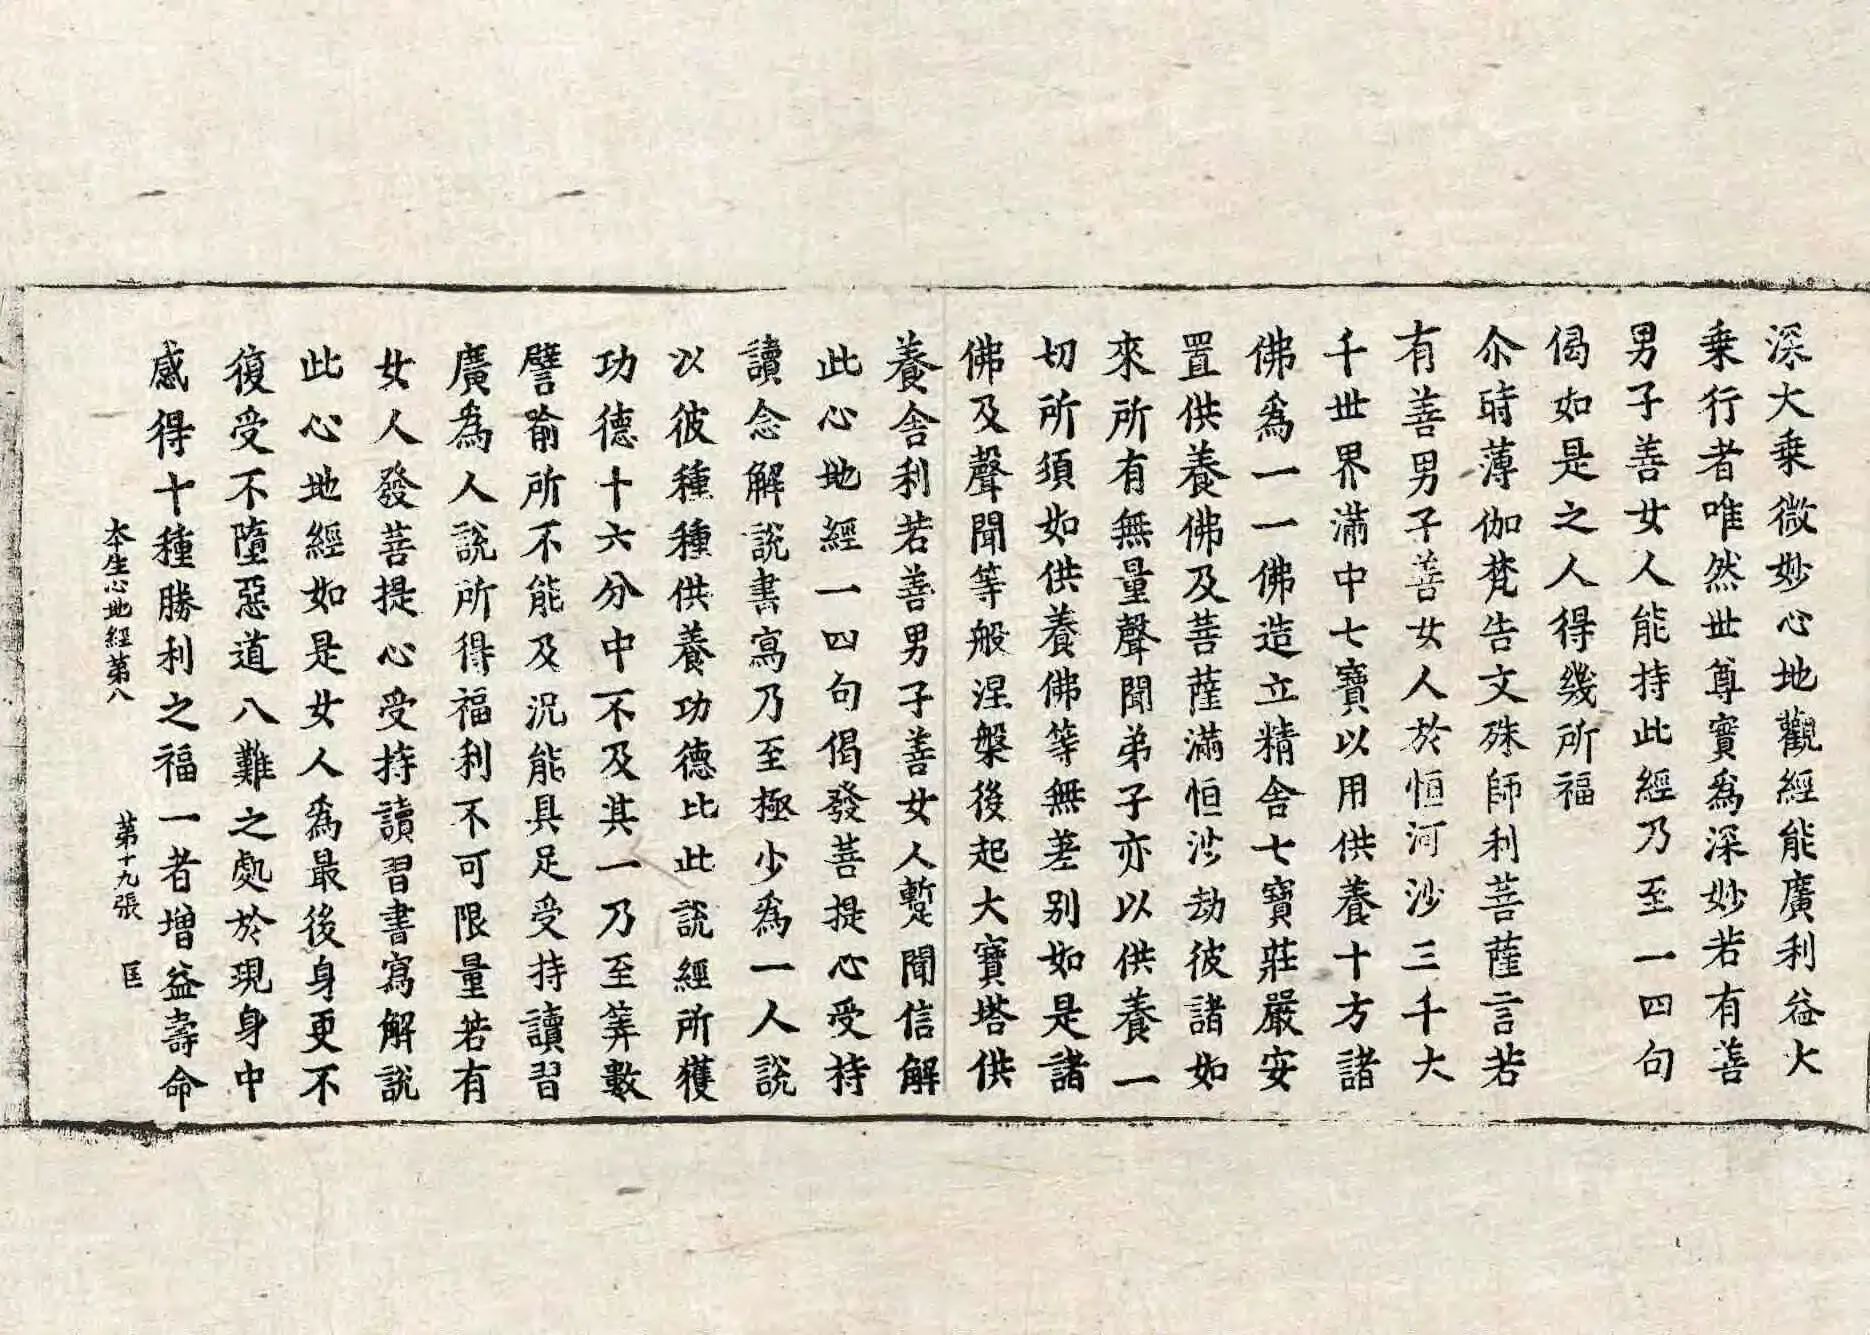 深大乗微妙心地觀經能廣利益大
乗行者唯然世尊實為深妙若有善
男子善女人能持此經乃至一四句
偈如是之人得幾所福
尒時薄伽梵告文殊師利菩薩言若
有善男子善女人於恒河沙三千大
千世界滿中七寶以用供養十方諸
佛為一一佛造立精舍七寶莊嚴安
置供養佛及菩薩滿恒沙劫彼諸如
來所有無量聲聞弟子亦以供養一
切所須如供養佛等無差别如是諸
佛及聲聞等般涅槃後起大寶塔供
養舍利若善男子善女人蹔聞信解
此心地經一四句偈發菩提心受持
讀念解說書寫乃至極少為一人說
以彼種種供養功德比此說經所獲
功德十六分中不及其一乃至筭數
譬喻所不能及況能具足受持讀習
廣為人說所得福利不可限量若有
女人發菩提心受持讀習書寫解說
此心地經如是女人為最後身更不
復受不墮惡道八難之處於現身中
感得十種勝利之福一者增益壽命
本生心地經第八 第十九張 匡